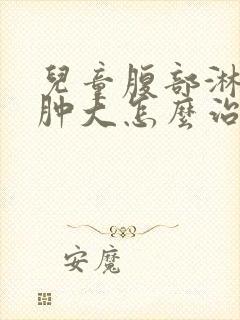 兒童腹部淋
肿大怎麼治
安魔